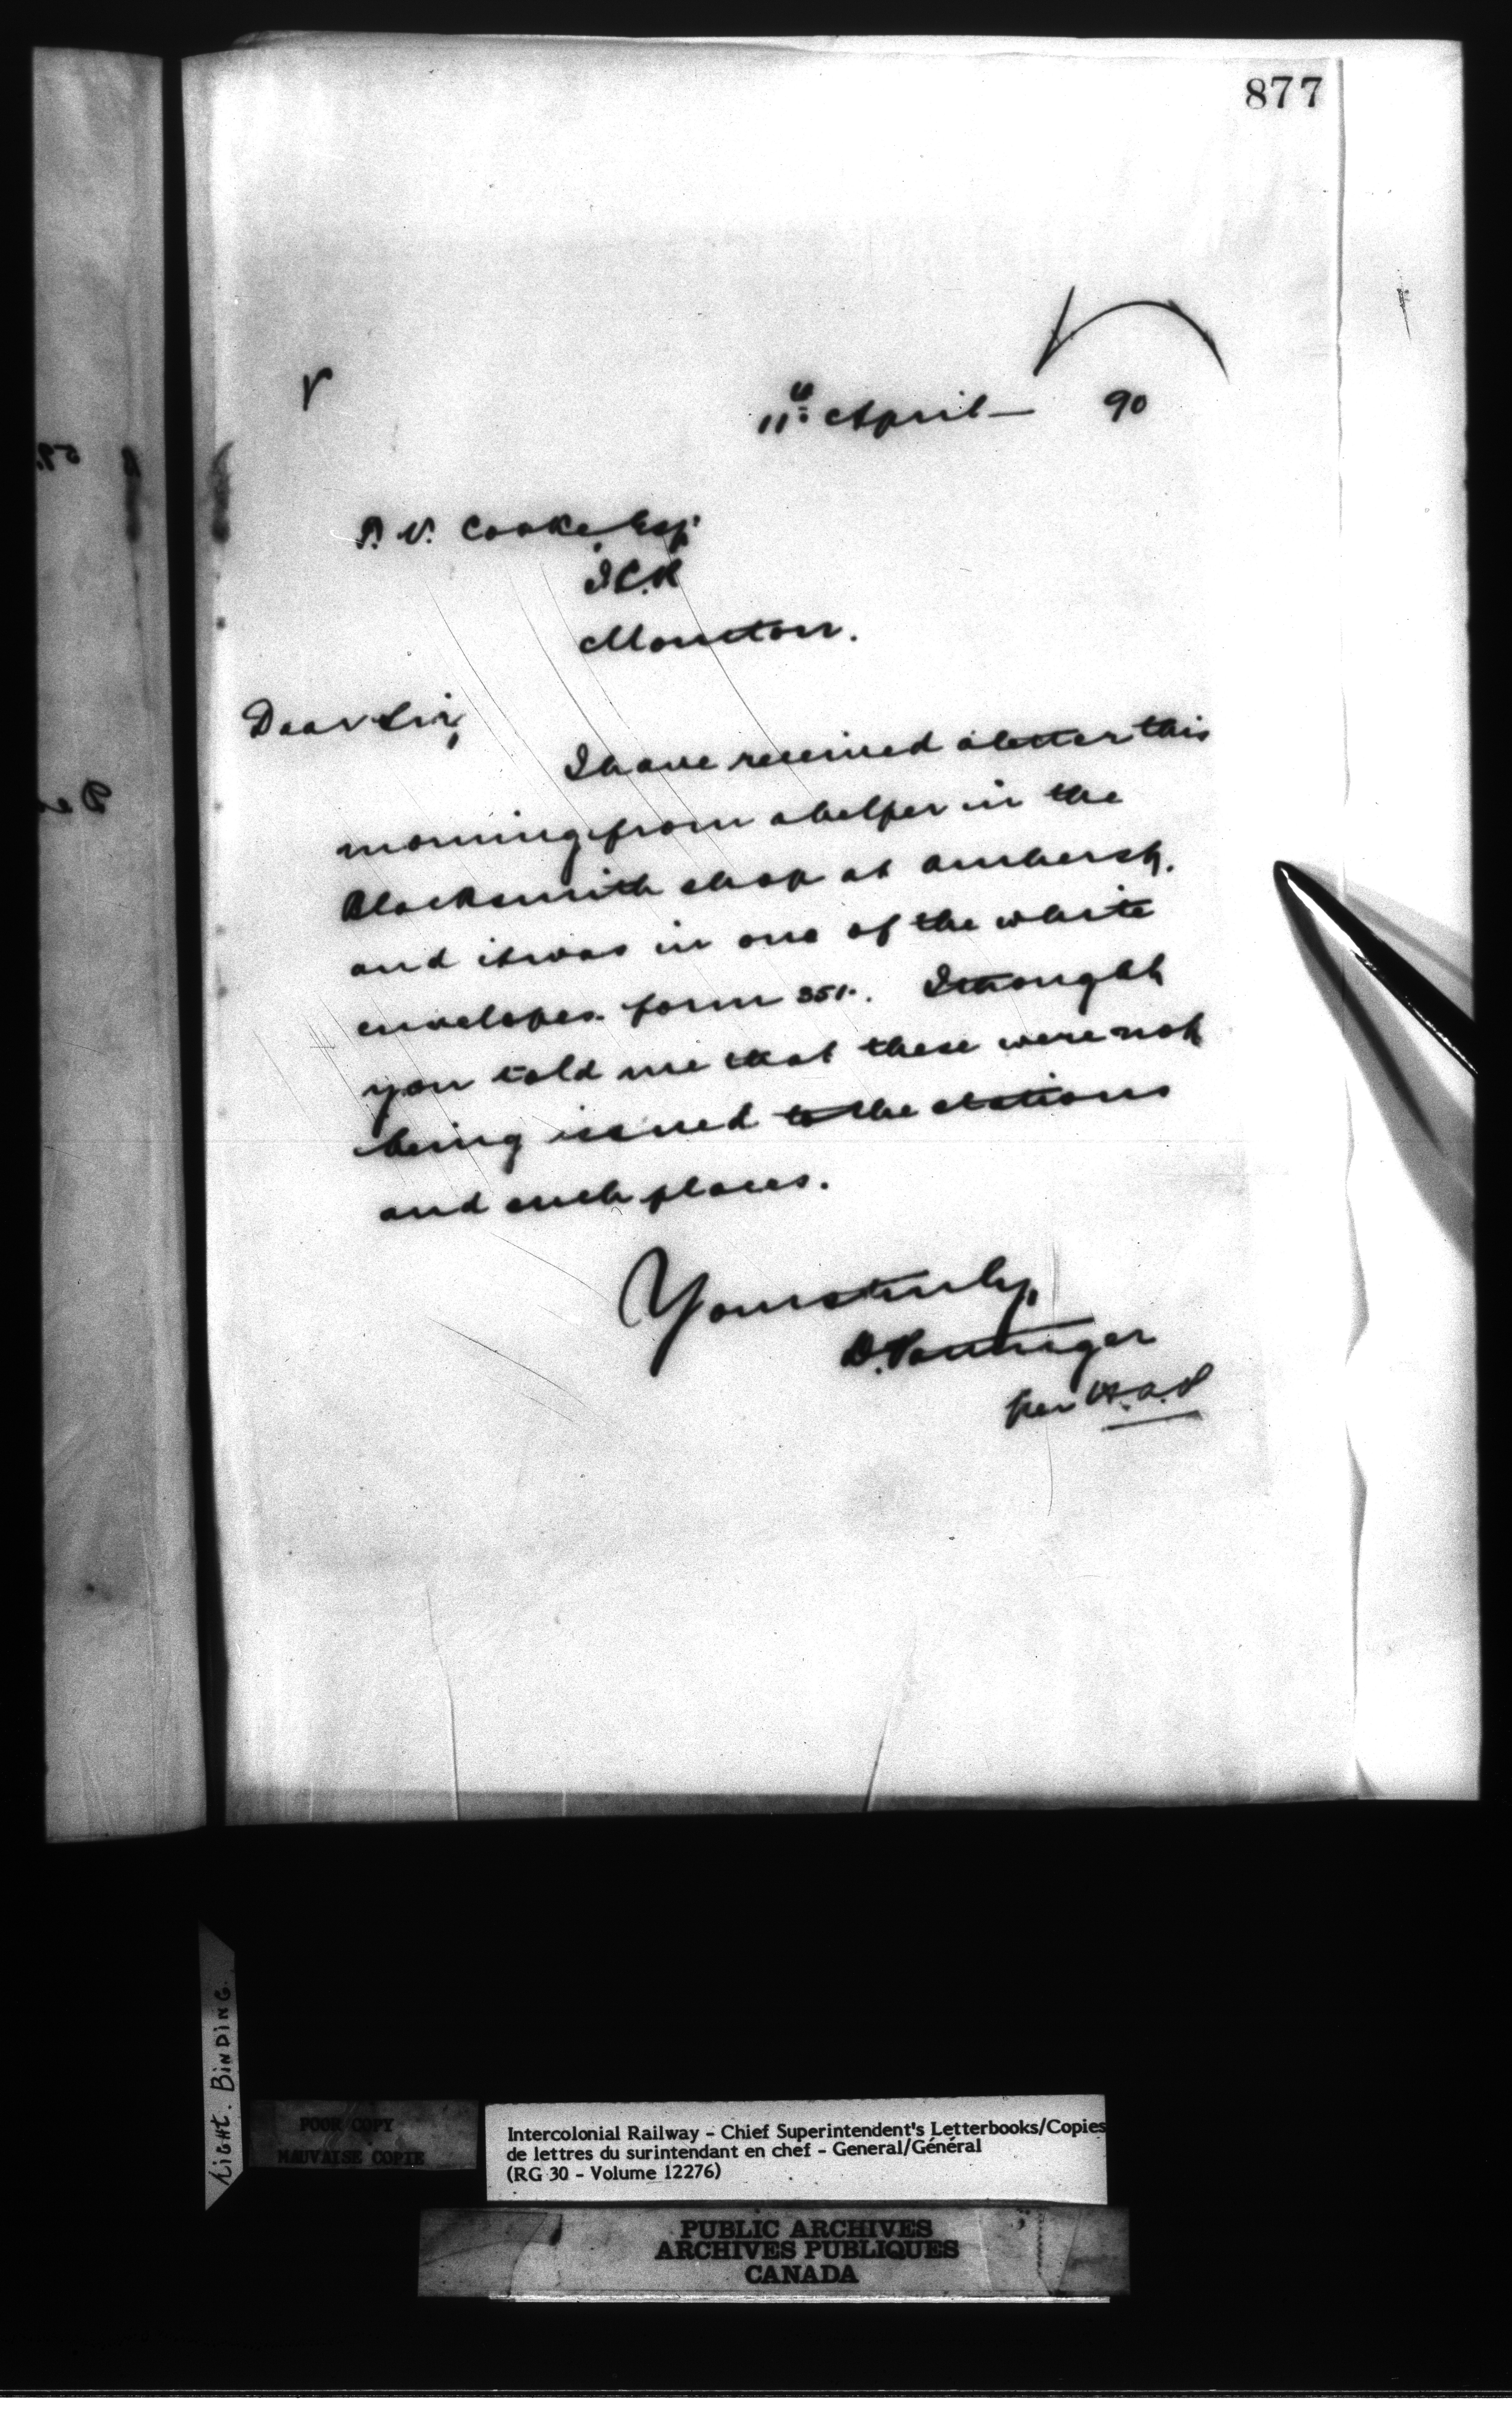 877
11th April — 90
P. V. Cooke, Esq.
I.C.R
Moncton.
Dear Sir,
I have received a letter this
morning from a helper in the
Blacksmith shop at Amherst,
and it was in one of the white
envelopes form 351. I thought
you told me that these were not
being issued to the stations
and such places.
Yours truly,
D. Pottinger
per H.A.P
TIGHT. BINDING.
POOR COPY
MAUVAISE COPIE
Intercolonial Railway - Chief Superintendent's Letterbooks/Copies
de lettres du surintendant en chef - General/Général
(RG 30 - Volume 12276)
PUBLIC ARCHIVES
ARCHIVES PUBLIQUES
CANADA